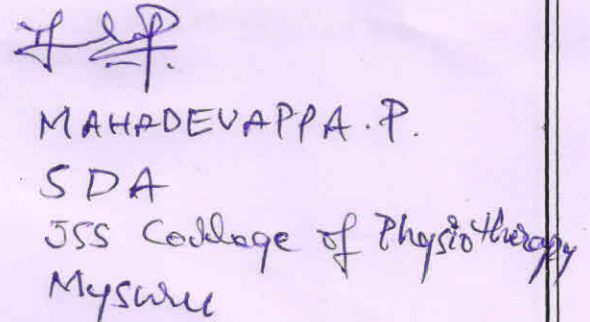 MAHADEVAPPA.P.
SDA
JSS Collage of Physiotherapy
Mysuru